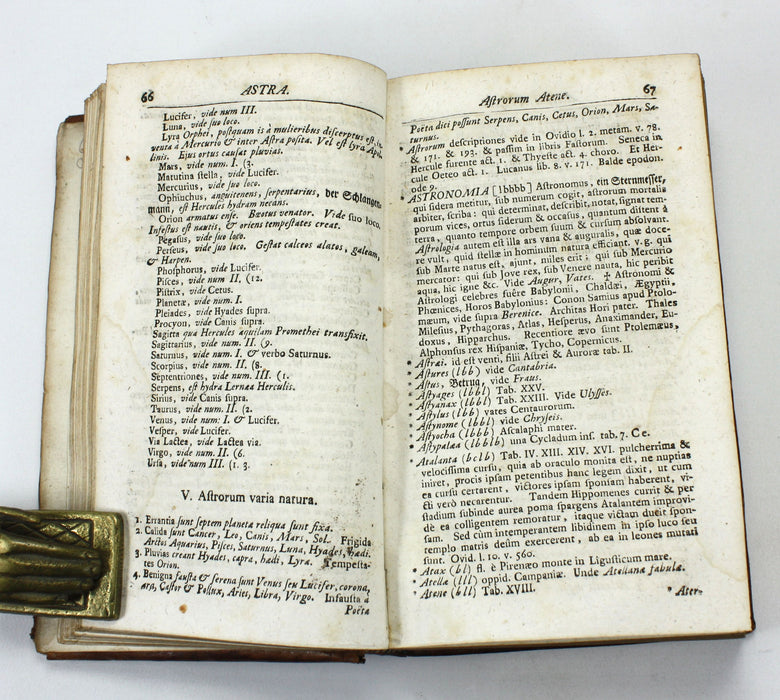 66 ASTRA.
Lucifer, vide num III.
Luna, vide suo loco.
Lyra Orphei, postquam is à mulieribus discerptus est, in-
venta à Mercurio & inter Astra posita. Vel est lyra Apol
linis. Ejus ortus causat pluvias.
Mars, vide num. I. (3.
Matutina stella, vide Lucifer.
Mercurius, vide suo loco.
Ophiuchus, anguitenens, serpentarius, der Schlangen-
mann, est Herculis hydram necans.
Orion armatus ense. Bœotus venator. Vide suo loco,
Infestus est nautis, & oriens tempestates creat.
Pegasus, vide suo loco.
Perseus, vide suo loco. Gestat calceos alatos, galeam,
& Harpen.
Phosphorus, vide Lucifer.
Pisces, vide num II. (12.
Pistrix, vide Cetus.
Planetæ, vide num. I.
Pleiades, vide Hyades supra.
Procyon, vide Canis supra.
Sagitta qua Hercules aquilam Promethei transfixit.
Sagittarius, vide num. II. (9.
Saturnus, vide num. I. & verbo Saturnus.
Scorpius, vide num. II. (8.
Septentriones, vide num. III. (1.
Serpens, est hydra Lernæa Herculis.
Sirius, vide Canis supra.
Taurus, vide num. II. (2.
Venus, vide num: I. & Lucifer.
Vesper, vide Lucifer.
Via Lactea, vide Lactea via.
Virgo, vide num. II. (6.
Ursa, vide num III. (1. 3.
V. Astrorum varia natura.
1. Errantia sunt septem planetæ reliqua sunt fixa.
2. Calida sunt Cancer, Leo, Canis, Mars, Sol. Frigida
Arctos Aquarius, Pisces, Saturnus, Luna, Hyades, hædi.
3. Pluvias creant Hyades, capra, hædi, Lyra. Tempesta-
tes Orion.
4. Benigna fausta & serena sunt Venus seu Lucifer, corona,
ara, Castor & Pollux, Aries, Libra, Virgo. Infausta à
Poëta
Astrorum Atene. 67
Poëta dici possunt Serpens, Canis, Cetus, Orion, Mars, Sa-
turnus.
* Astrorum descriptiones vide in Ovidio l. 2. metam. v. 78.
& 171. & 193. & passim in libris Fastorum. Seneca in
Hercule furente act. 1. & Thyeste act. 4. choro. Et Her-
cule Oeteo act. 1. Lucanus lib. 8. v. 171. Balde epodon.
ode 9.
ASTRONOMIA [lbbbb] Astronomus, ein Sternmesser,
qui sidera metitur, sub numerum cogit, astrorum mortalis
arbiter, scriba: qui determinat, describit, notat, signat tem-
porum vices, ortus siderum & occasus, quantum distent à
terra, quanto tempore orbem suum & cursum absolvant.
Astrologia autem est illa ars vana & auguralis, quæ doce-
re vult, quid stellæ in hominum natura efficiant. v. g. qui
sub Marte natus est, ajunt, miles erit; qui sub Mercurio
mercator: qui sub Jove rex, sub Venere nauta, hic peribit
aqua, hic igne &c. Vide Augur, Vates. ✢ Astronomi &
Astrologi celebres fuêre Babylonii, Chaldæi, Ægyptii,
Phœnices, Horos Babylonius: Conon Samius apud Ptolo-
mæum, vide supra Berenice. Architas Hori pater. Thales
Milesius, Pythagoras, Atlas, Hesperus, Anaximander, Eu-
doxus, Hipparchus. Recentiore ævo sunt Ptolemæus,
Alphonsus rex Hispaniæ, Tycho, Copernicus.
* Astræi. id est venti, filii Astrei & Auroræ tab. II.
* Astures (lbb) vide Cantabria.
* Astus, Betrug, vide Fraus.
* Astyages (lbbl) Tab. XXV.
* Astyanax (lbbl) Tab. XXIII. Vide Ulysses.
* Astylus (lbb) vates Centaurorum.
* Astynome (lbbl) vide Chryseis.
* Astyocha (lbbb) Ascalaphi mater.
* Astypalæa (lbblb) una Cycladum ins. tab. 7. C e.
* Atalanta (bclb) Tab. IV. XIII. XIV. XVI. pulcherrima &
velocissima cursu, quia ab oraculo monita est, ne nuptias
iniret, procis ipsam petentibus hanc legem dixit, ut cum
ea cursu certarent, victores ipsam sponsam haberent, vi-
cti verò necarentur. Tandem Hippomenes currit & per
stadium subinde aurea poma spargens Atalantam improvi-
dè ea colligentem remoratur, itaque victam duxit spon-
sam. Sed cùm intemperantem libidinem in ipso luco seu
templo matris deûm exercerent, ab ea in leones mutati
sunt. Ovid. l. 10. v. 560.
* Atax (bl) fl. è Pirenæo monte in Ligusticum mare.
* Atella (lll) oppid. Campaniæ. Unde Atellana fabula.
* Atene (bll) Tab. XVIII.
* Ater-